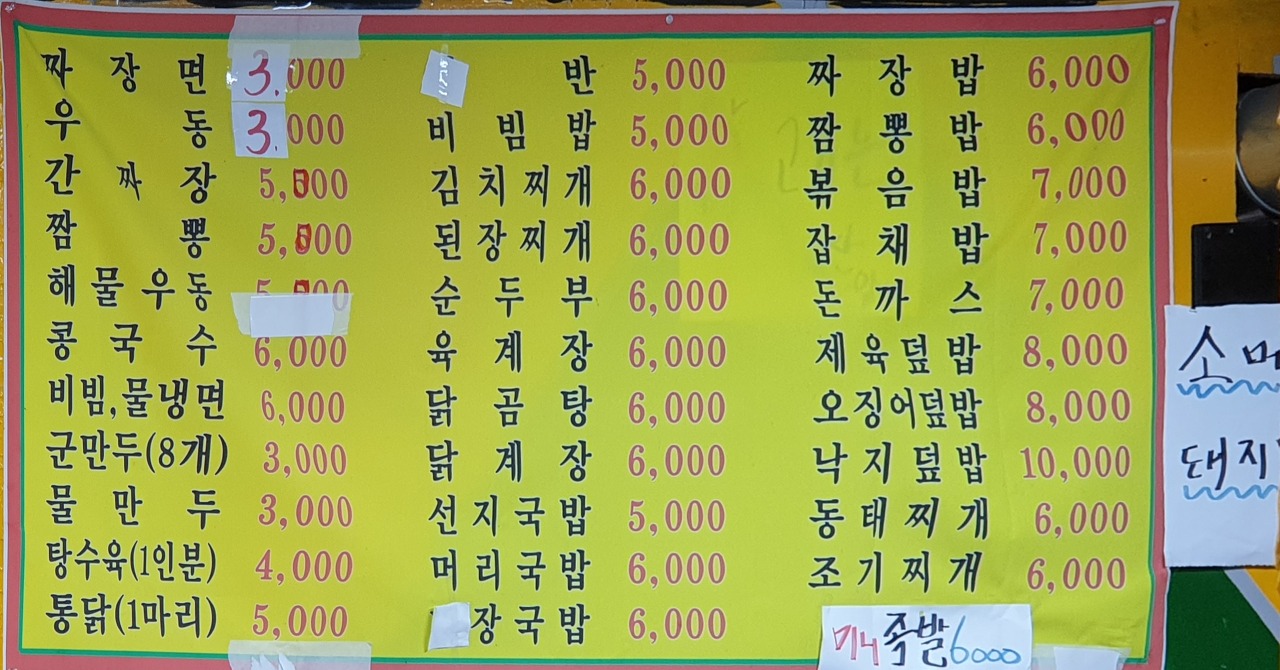 짜장면 3,000
우동 3,000
간짜장 5,500
짬뽕 5,500
해물우동
콩국수 6,000
비빔,물냉면 6,000
군만두(8개) 3,000
물만두 3,000
탕수육(1인분) 4,000
통닭(1마리) 5,000
반 5,000
비빔밥 5,000
김치찌개 6,000
된장찌개 6,000
순두부 6,000
육계장 6,000
닭곰탕 6,000
닭계장 6,000
선지국밥 5,000
머리국밥 6,000
장국밥 6,000
짜장밥 6,000
짬뽕밥 6,000
볶음밥 7,000
잡채밥 7,000
돈까스 7,000
제육덮밥 8,000
오징어덮밥 8,000
낙지덮밥 10,000
동태찌개 6,000
조기찌개 6,000
미니족발 6000
소머
돼지